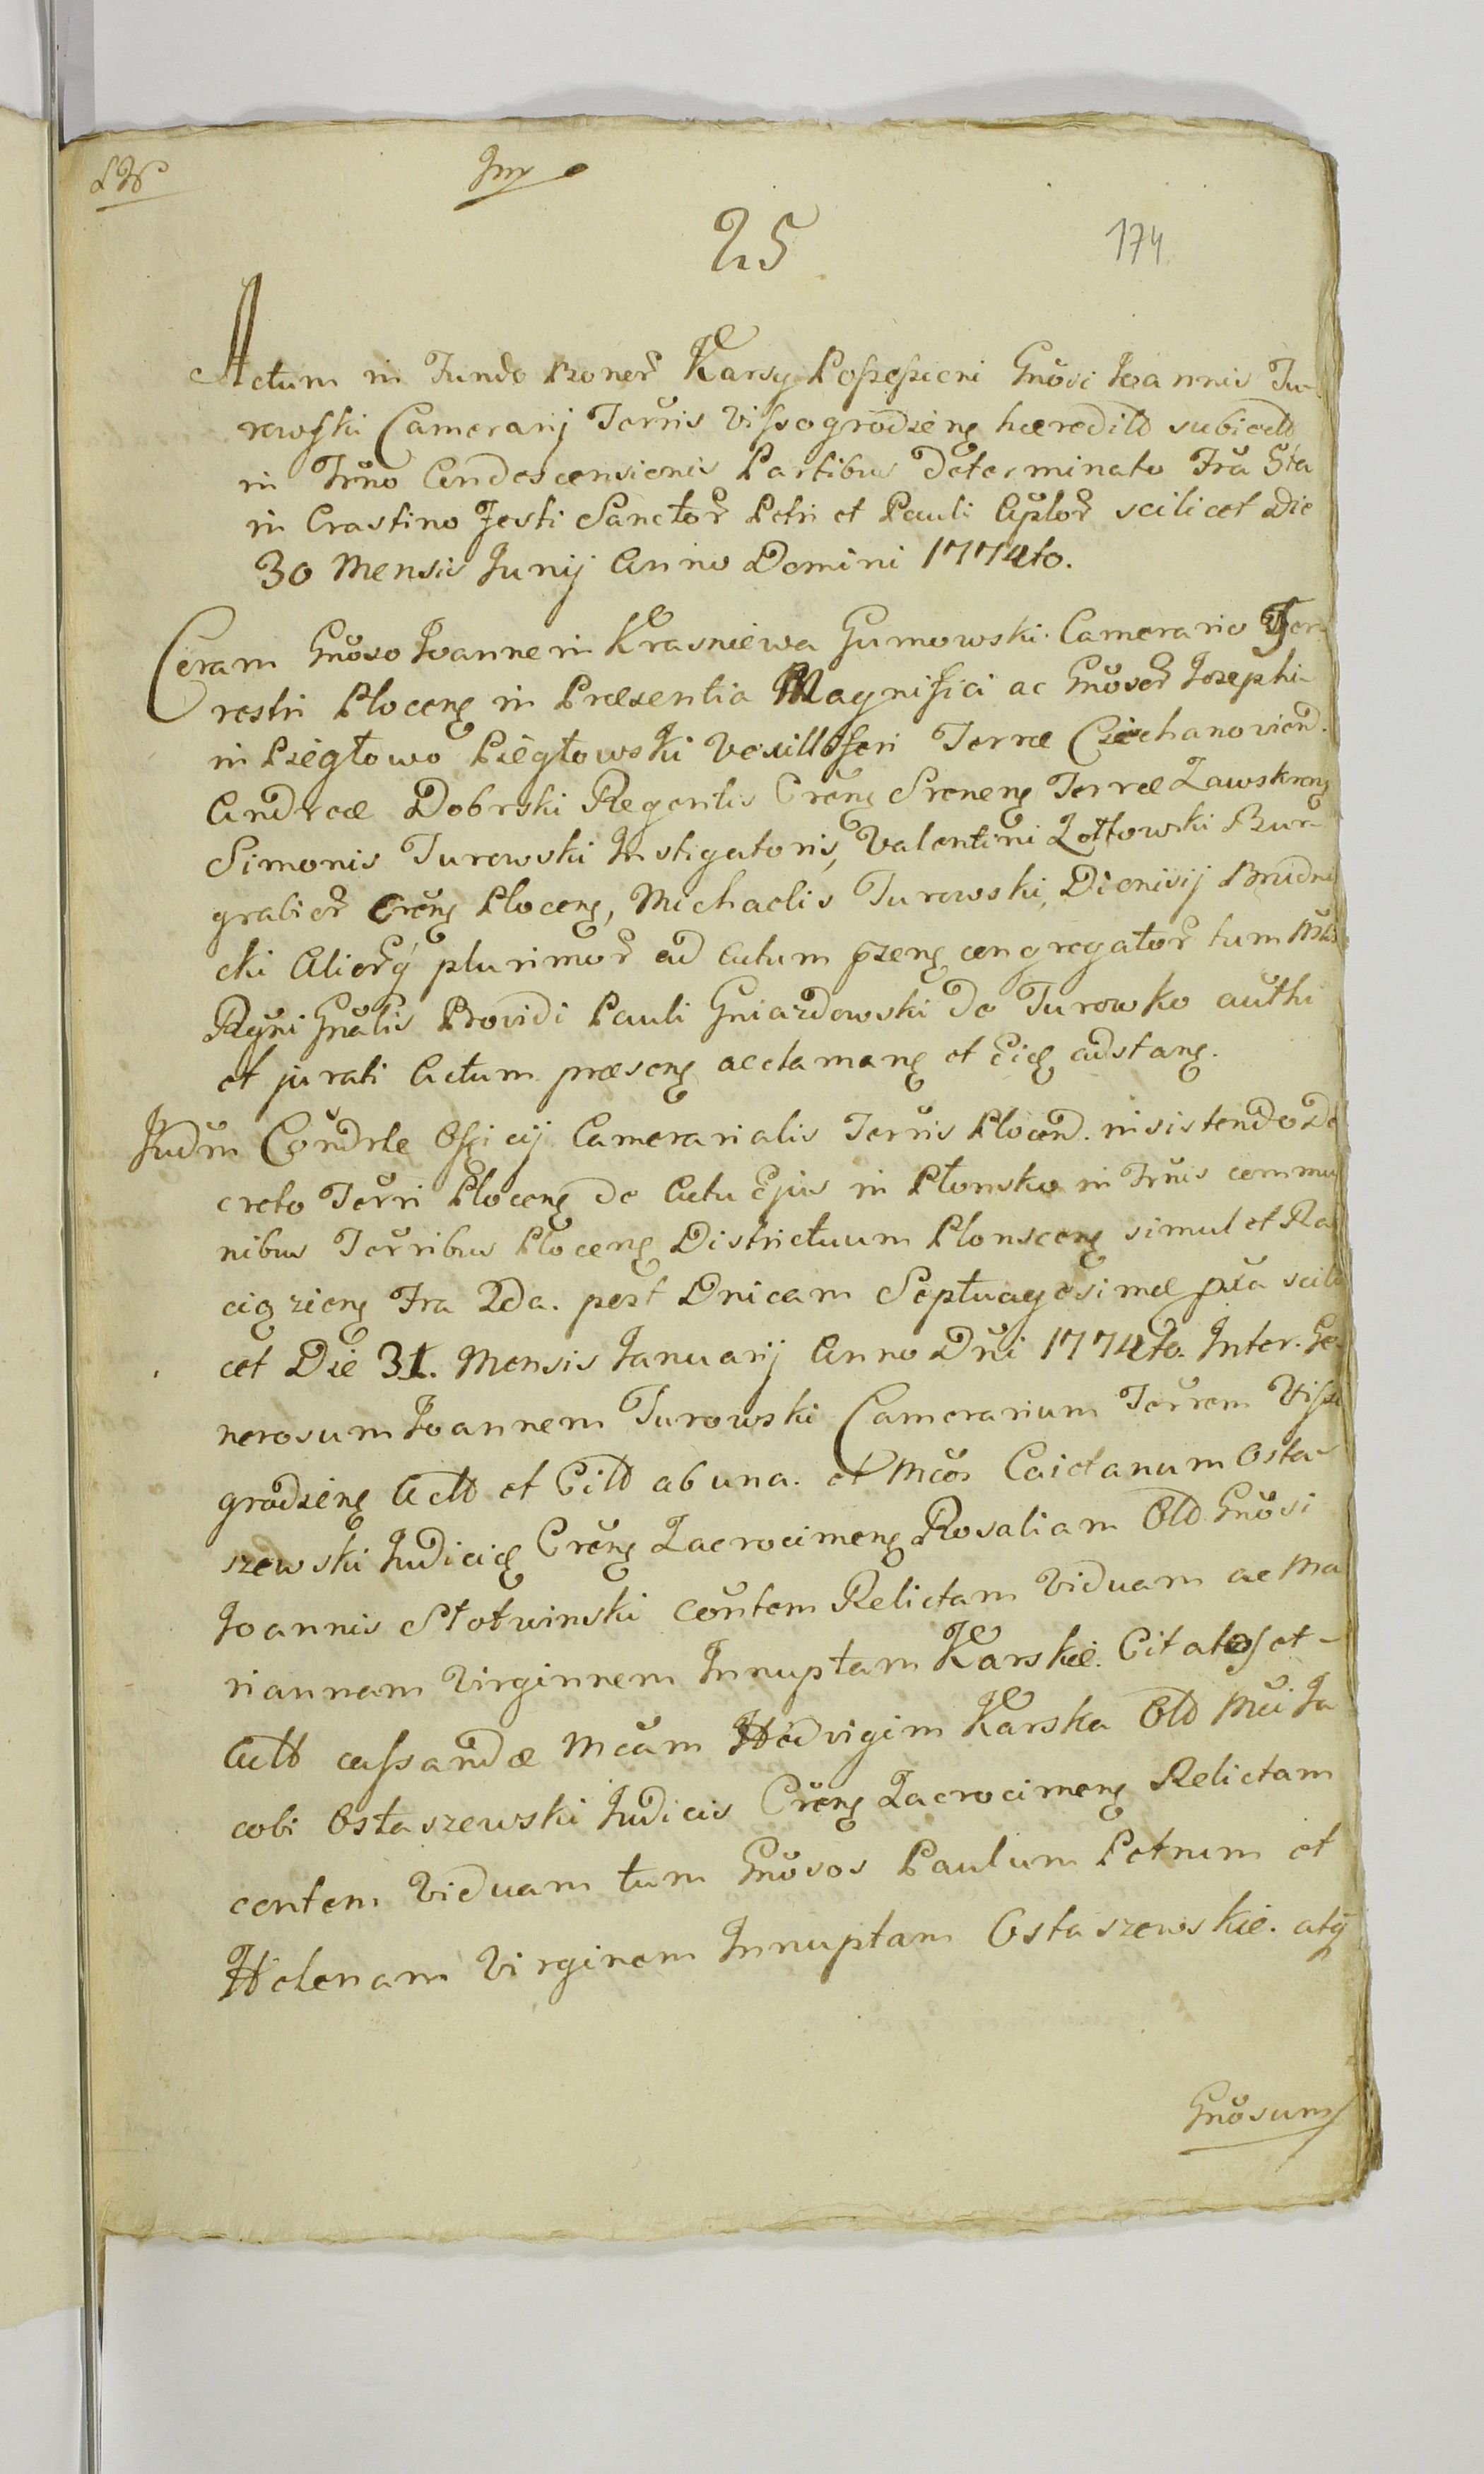 25
174
Actum in Fundo Bonor Karsy Possessioni Gnosi Joannis Tu-
rowski Camerarij Terris Vissogrodzieng hæredild subiectd
in Trno Condescensionis Partibus determinato Fra 5ta
in Crastino Festi Sanctor Petri et Pauli Aplor scilicet Die
30 Mensis Junij Anno Domini 1774to.
Coram Gnoso Joanne in Krasniewa Gumowski Camerario Ter-
restri Ploceng in Præsentia Magnifici ac Gnosor Josephi
in Pięgłowo Pięgłowski Vexilliferi Terræ Ciechanoviend.
Andreæ Dobrski Regentis Creng Sreneng Terræ Zawskreng
Simonis Turowski Instigatoris, Valentini Zołtowski Bur-
grabior Creng Ploceng, Michaelis Turowski, Dionisij Brudni
cki Aliorq plurimor ad Actum pzeng congregator tum
Regni Gnalis Providi Pauli Gniazdowski de Turowko authi
et jurati Actum præseng acclamang et Eidg adstang.
Judm Condrle Officij Camerarialis Terris Plocend. insistendo De
creto Terri Ploceng de Actu Ejus in Płonsko in Trnis commu
nibus Terribus Ploceng Districtuum Plonsceng simul et Ra
ciązieng Fra 2da. post Dnicam Septuagesimæ pxa scili
cet Die 31. Mensis Januarij Anno Dni 1774to. Inter. Ge-
nerosum Joannem Turowski Camerarium Terrem Visso
grodzieng Actd et Citd ab una. et Mcos Caietanum Osta-
szewski Judicidg Creng Zacrocimeng Rosaliam Old Gnosi
Joannis Słotwinski contem Relictam Viduam ac Ma
riannam Virginnem Innuptam Karskie. Citatos et
Actd cassandæ Mcam Hedvigim Karska Old Mci Ja
cobi Ostaszewski Judicis Creng Zacrocimeng Relictam
contem Viduam tum Gnosos Paulum Petrum et
Helenam Virginem Innuptam Ostaszewskie. atq
Gnosum